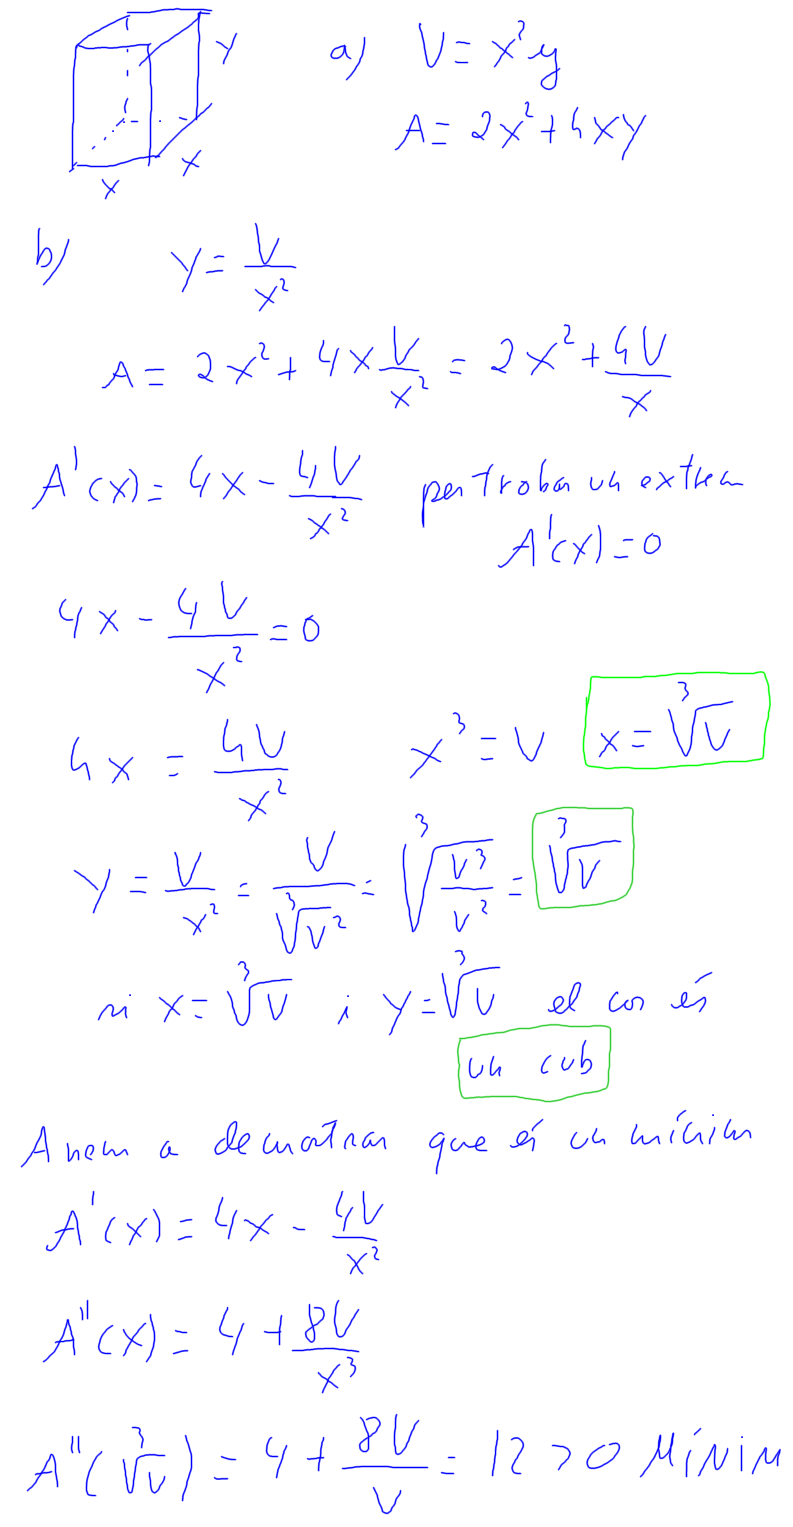 y
x
x
a) V = x²y
A = 2x² + 4xy
b) y = V/x²
A = 2x² + 4x V/x² = 2x² + 4V/x
A'(x) = 4x - 4V/x² per trobar un extrem
A'(x) = 0
4x - 4V/x² = 0
4x = 4V/x² x³ = V x = ∛V
y = V/x² = V/∛V² = ∛(V³/V²) = ∛V
si x = ∛V i y = ∛V el cos és
un cub
Anem a demostrar que és un mínim
A'(x) = 4x - 4V/x²
A''(x) = 4 + 8V/x³
A''(∛V) = 4 + 8V/V = 12 > 0 MÍNIM